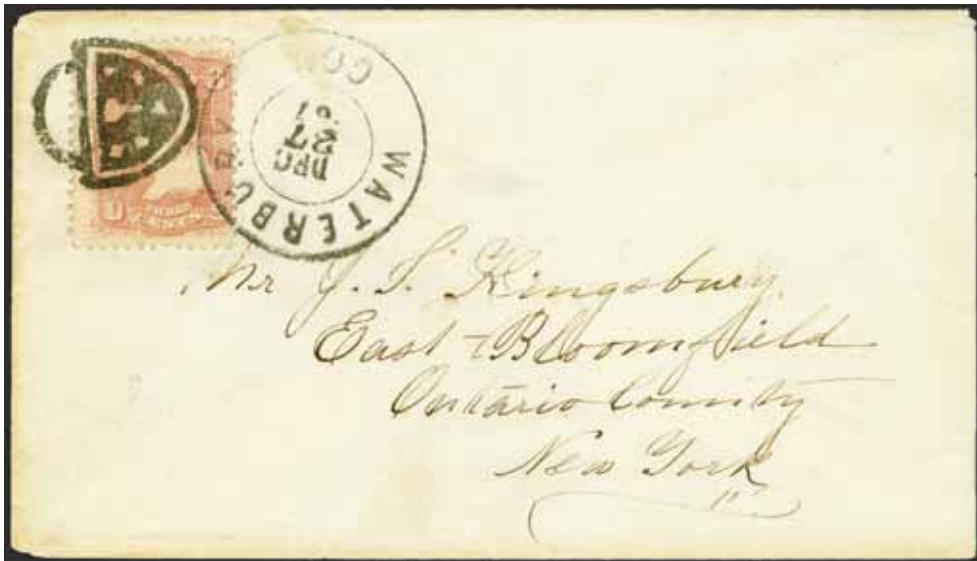 WATERBURY CO
DEC
27
Mr J. S. Kingsbury
East Bloomfield
Ontario County
New York